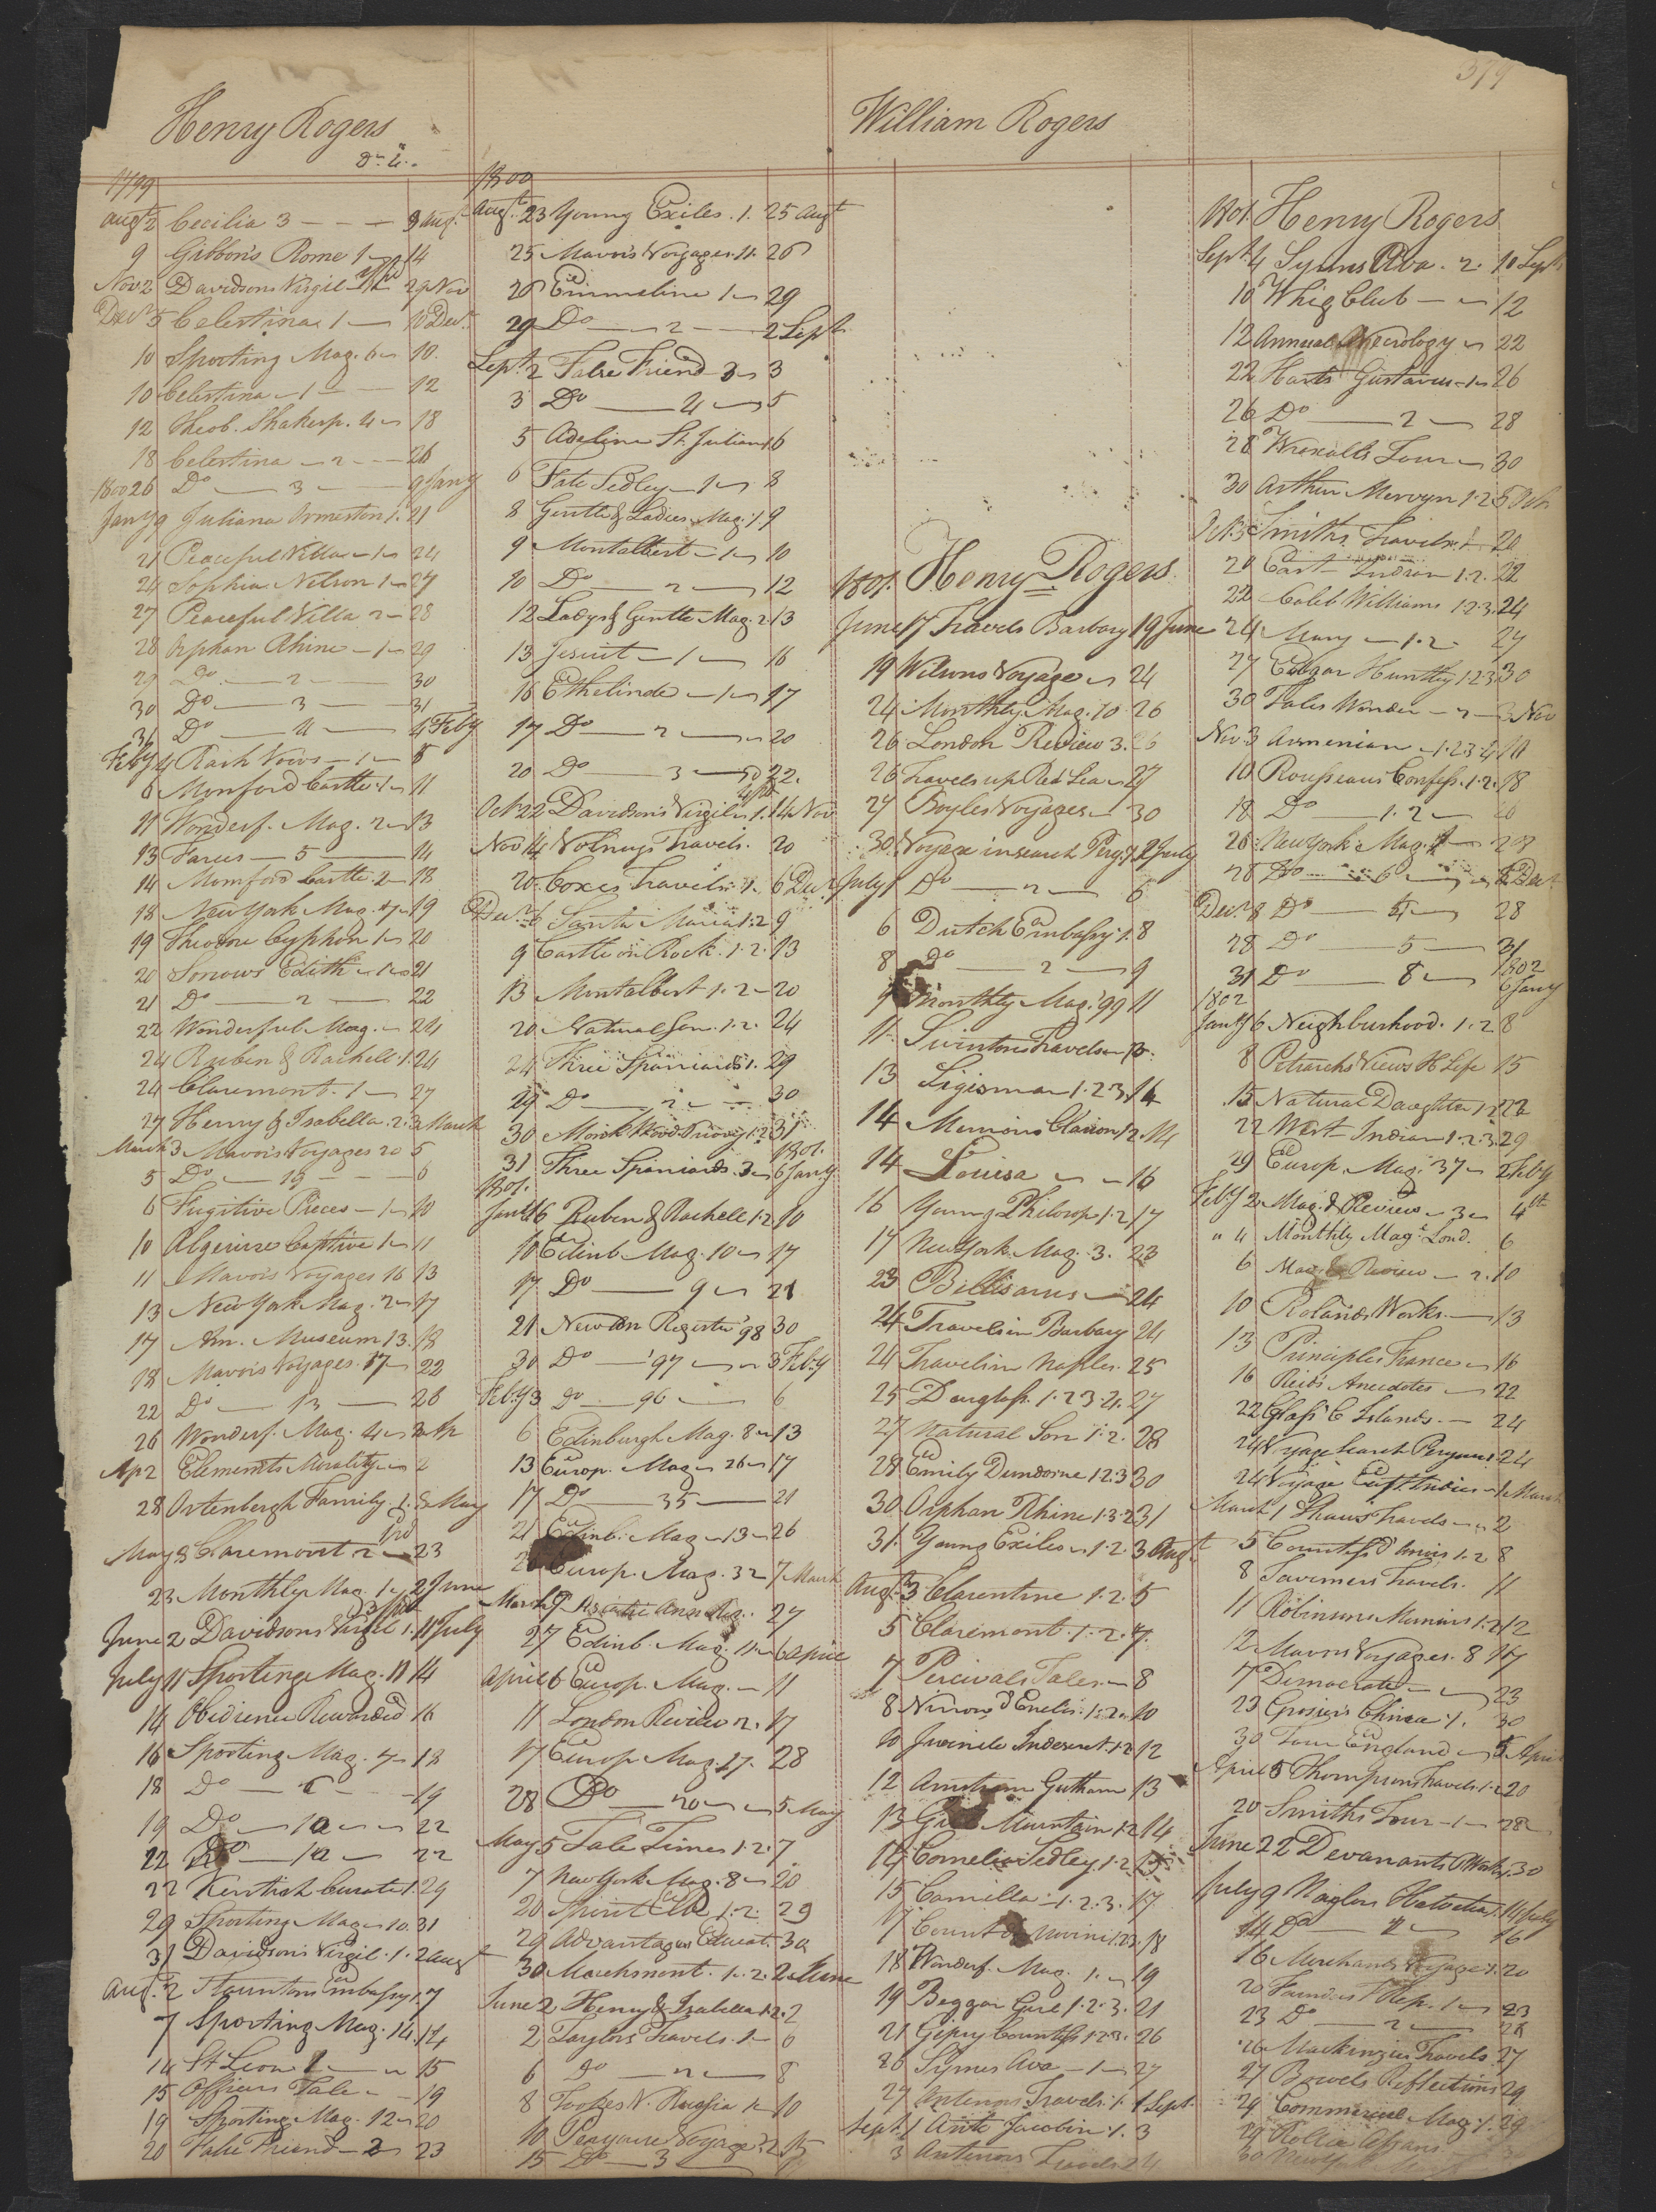 379
Henry Rogers
1799
Augt 2 Cecilia 3 — 9 Augt
9 Gibbon's Rome 1 — 14
Nov 2 Davidsons Virgil — 29 Nov
Decr 5 Celestina 1 — 10 Decr
10 Sporting Mag. 6 — 10
10 Celestina — 1 — 12
12 Theob. Shakesp. 4 — 18
18 Celestina — 2 — 26
1800 26 Do — 3 — 9 Jany
Jany 9 Juliana Ormeston 1. 21
21 Peaceful Villa — 1 — 24
24 Sophia Nelson 1 — 27
27 Peaceful Villa 2 — 28
28 Orphan Rhine — 1 — 29
29 Do — 2 — 30
30 Do — 3 — 31
31 Do — 4 — 4 Feby
Feby 4 Rash Vows — 1 — 8
8 Monford Castle 1 — 11
11 Wonderf. Mag. 2 — 13
13 Farces — 5 — 14
14 Momford Castle. 2 — 18
18 New York Mag. 7 — 19
19 Theodore Cyphon 1 — 20
20 Sorrows Edith — 1 — 21
21 Do — 2 — 22
22 Wonderful Mag. — 24
24 Ruben & Rachell. 1. 24
24 Claremont. 1 — 27
27 Henry & Isabella. 2. 3 March
March 3 Mavors Voyages 20 5
5 Do — 19 — 6
6 Fugitive Pieces — 1 — 10
10 Algerine Captive 1 — 11
11 Mavors Voyages 16 13
13 New York Mag. 2 — 17
17 Am. Museum 13. 18
18 Mavors Voyages. 17 — 22
22 Do — 13 — 26
26 Wonderf. Mag. 4 — 2 Ap
Ap 2 Elements Morality — 2
28 Ortenbergh Family. 1. 8 May
May 8 Claremont 2 — 23
23 Monthly Mag. 1 — 2 June
June 2 Davidsons Virgil 1. 11 July
July 11 Sporting Mag. 11 14
14 Obedience Rewarded 16
16 Sporting Mag. 7 — 18
18 Do — 19
19 Do — 10 — 22
22 Do — 10 — 22
22 Kentish Curate 1. 29
29 Sporting Mag — 10. 31
31 Davidsons Virgil. 1. 2 Augt
Augt 2 Stauntons Embassy 1. 7
7 Sporting Mag. 14. 14
14 St Leon 2 — 15
15 Officers Tale — 19
19 Sporting Mag. 12 — 20
20 False Friend — 2 — 23
1800
Augt 23 Young Exiles. 1. 25 Augt
25 Mavors Voyages. 11. 26
26 Emmeline 1 — 29
29 Do — 2 — 2 Sept
Sept 2 False Friend 3 — 3
3 Do — 4 — 5
5 Adeline St. Julian 1 6
6 Fate Sedley — 1 — 8
8 Gentle & Ladies Mag. 1. 9
9 Montalbert — 1 — 10
10 Do — 2 — 12
12 Ladys & Gentle Mag. 2. 13
13 Jesuit — 1 — 16
16 Ethelinde — 1 — 17
17 Do — 2 — 20
20 Do — 3 — 22.
Oct 22 Davidsons Virgil — 1. 14 Nov
Nov 14 Volneys Travels. 20
20 Coxes Travels. 1. 6 Decr
Decr 6 Santa Maria 1. 2 9
9 Castle on Rock. 1. 2. 13
13 Montalbert 1. 2 — 20
20 Natural Son. 1. 2. 24
24 Three Spaniards 1. 29
29 Do — 2 — 30
30 Monk Wood Priory 1. 2 31
31 Three Spaniards. 3 — 1801. 6 Jany
1801.
Jany 6 Ruben & Rachell 1. 2 10
10 Edinb. Mag. 10 — 17
17 Do — 9 — 21
21 New An Register '98 30
30 Do — '97 — 3 Feby
Feby 3 do — 96 — 6
6 Edinburgh Mag. 8 — 13
13 Europ. Mag — 26 — 17
17 Do — 35 — 21
21 Edinb. Mag — 13 — 26
26 Europ. Mag. 32 — 7 March
March 7 Ann Reg. 27
27 Edinb. Mag. 11 — 6 April
April 6 Europ. Mag. — 11
11 London Review 2. 17
17 Europ Mag. 27. 28
28 Do — 20 — 5 May
May 5 Tale Times 1. 2. 7
7 New York Mag. 8 — 20
20 Spirit Elb 1. 2. 29
29 Advantages Educat. 30
30 Marchmont. 1. 2. 2 June
June 2 Henry & Isabella 1. 2. 2
2 Taylors Travels. 1 — 6
6 do — 2 — 8
8 Tookes N. Russia 1 — 10
10 Voyage 2 15
15 Do — 3
William Rogers
1801. Henry Rogers
June 17 Travels Barbary 19 June
19 Wilsons Voyage — 24
24 Monthly Mag. 10 26
26 London Review 3. 26
26 Travels up Red Sea — 27
27 Boyles Voyages — 30
30 Voyage in search Perys. 1 2 July
July 1 Do — 2 — 6
6 Dutch Embassy. 1. 8
8 do — 2 — 9
9 Monthly Mag. '99 11
11 Swintons Travels — 13.
13 Sigismar 1. 2 3. 14
14 Memoirs Clarion 1 2. 14
14 Louisa — 16
16 Young Philosop 1. 2 17
17 New York Mag. 3. 23
23 Bellisarius — 24
24 Travels in Barbary 24
24 Travels in Naples. 25
25 Douglass. 1. 2 3. 4. 27
27 Natural Son 1. 2. 28
28 Emily Dundorne 1 2. 3 30
30 Orphan Rhine 1. 3. 2 31
31. Young Exiles — 1. 2. 3 Augt
Augt 3 Clarentine 1. 2. 5
5 Claremont. 1. 2. 7.
7 Percivals Tales — 8
8 Ninon d Enclis. 1. 2. 10
10 Juvenile Indescret. 1. 2 12
12 Gotham 13
13 Mountain 1. 2 14
14 Cornelia Sedley 1. 2 15
15 Camilla — 1. 2. 3. 17
17 Count 18
18 Wonderf. Mag. 1. — 19
19 Beggar Girl 1. 2. 3. 21
21 Gipsy Countess 1 2 3. 26
26 Symes Ava — 1 — 27
27 Antenors Travels. 1. 1 Sept.
Sept 1 Anti Jacobin. 1. 3
3 Antenors Travels 2 4
1801. Henry Rogers
Sept 4 Symns Ava. 2. 10 Sept
10 Whig Club — 12
12 Annual Necrology — 22
22 Harts Gustavus — 1 — 26
26 Do — 2 — 28
28 Wraxalls Tour — 30
30 Arthur Mervyn 1. 2 5 Oct
Oct 5 Smiths Travels. 1. 20
20 East Indian 1. 2. 22
22 Caleb Williams 1. 2. 3. 24
24 Mary — 1. 2. 27
27 Edgar Huntley 1. 2 3. 30
30 Tales Wonder — 2 — 3 Nov
Nov. 3 Armenian — 1. 2 3. 4 10
10 Rousseaus Confess. 1. 2. 18
18 Do — 1. 2 —
New York Mag.
Do — 6 — Decr
Decr 8 Do — 28
28 Do — 5 — 31
31 Do — 8 — 1802 6 Jany
1802
Jany 6 Neighbourhood. 1. 2 8
8 Petrarchs Views H Life 15
15 Natural Daughter 1. 2 22
22 West Indian 1. 2. 3 29
29 Europ. Mag. 37 — 2 Feby
Feby 2 Mag. & Review — 3 — 4th
" 4 Monthly Mag. Lond. 6
6 Mag. & Review — 2. 10
10 Rolands Works. — 13
13 Principles France — 16
16 Reids Anecdotes — 22
22 Glass C Islands. — 24
24 Voyage Search Perouse 24
24 Voyage East Indies — 1 March
March 1 Shaws Travels — 2
5 Countess d Anois 1. 2 8
8 Taverniers Travels. 11
11 Robinsons Memoirs 1. 2 12
12 Mavors Voyages. 8 17
17 Democrat — 23
23 Grosiers China. 1. 30
30 Tour England — 5 April
April 5 Thompsons Travels 1. 2 20
20 Smiths Tour — 1 — 28
June 22 Devanants Works. 30
July 9 Naylors Helvetia. 1. 14 July
14 Do — 2 — 16
16 Merchants Voyage 1. 20
20 Rep. 1 — 23
23 Do — 2 — 26
26 Mackenzies Travels 27
27 Bowels Reflections 29
29 Commercial Mag. 1. 29
29
30 New York